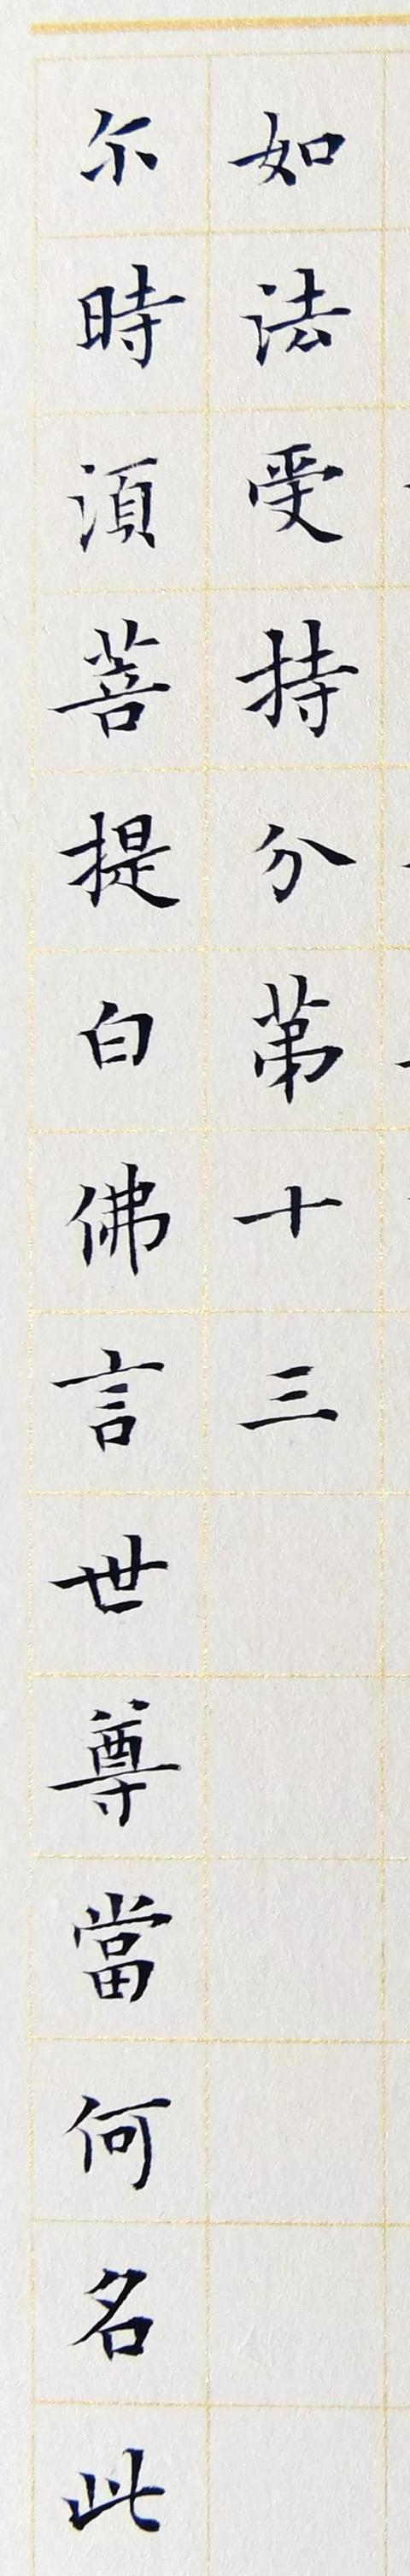 如法受持分第十三
尒時須菩提白佛言世尊當何名此